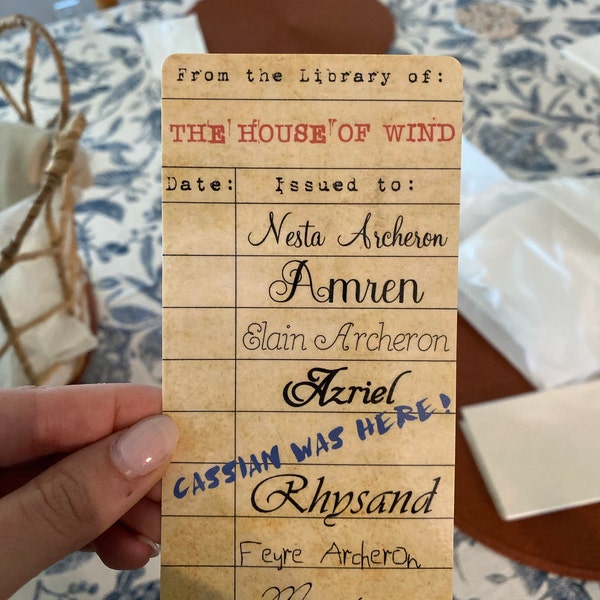 From the Library of:
THE HOUSE OF WIND
Date: Issued to:
Nesta Archeron
Amren
Elain Archeron
Azriel
CASSIAN WAS HERE!
Rhysand
Feyre Archeron